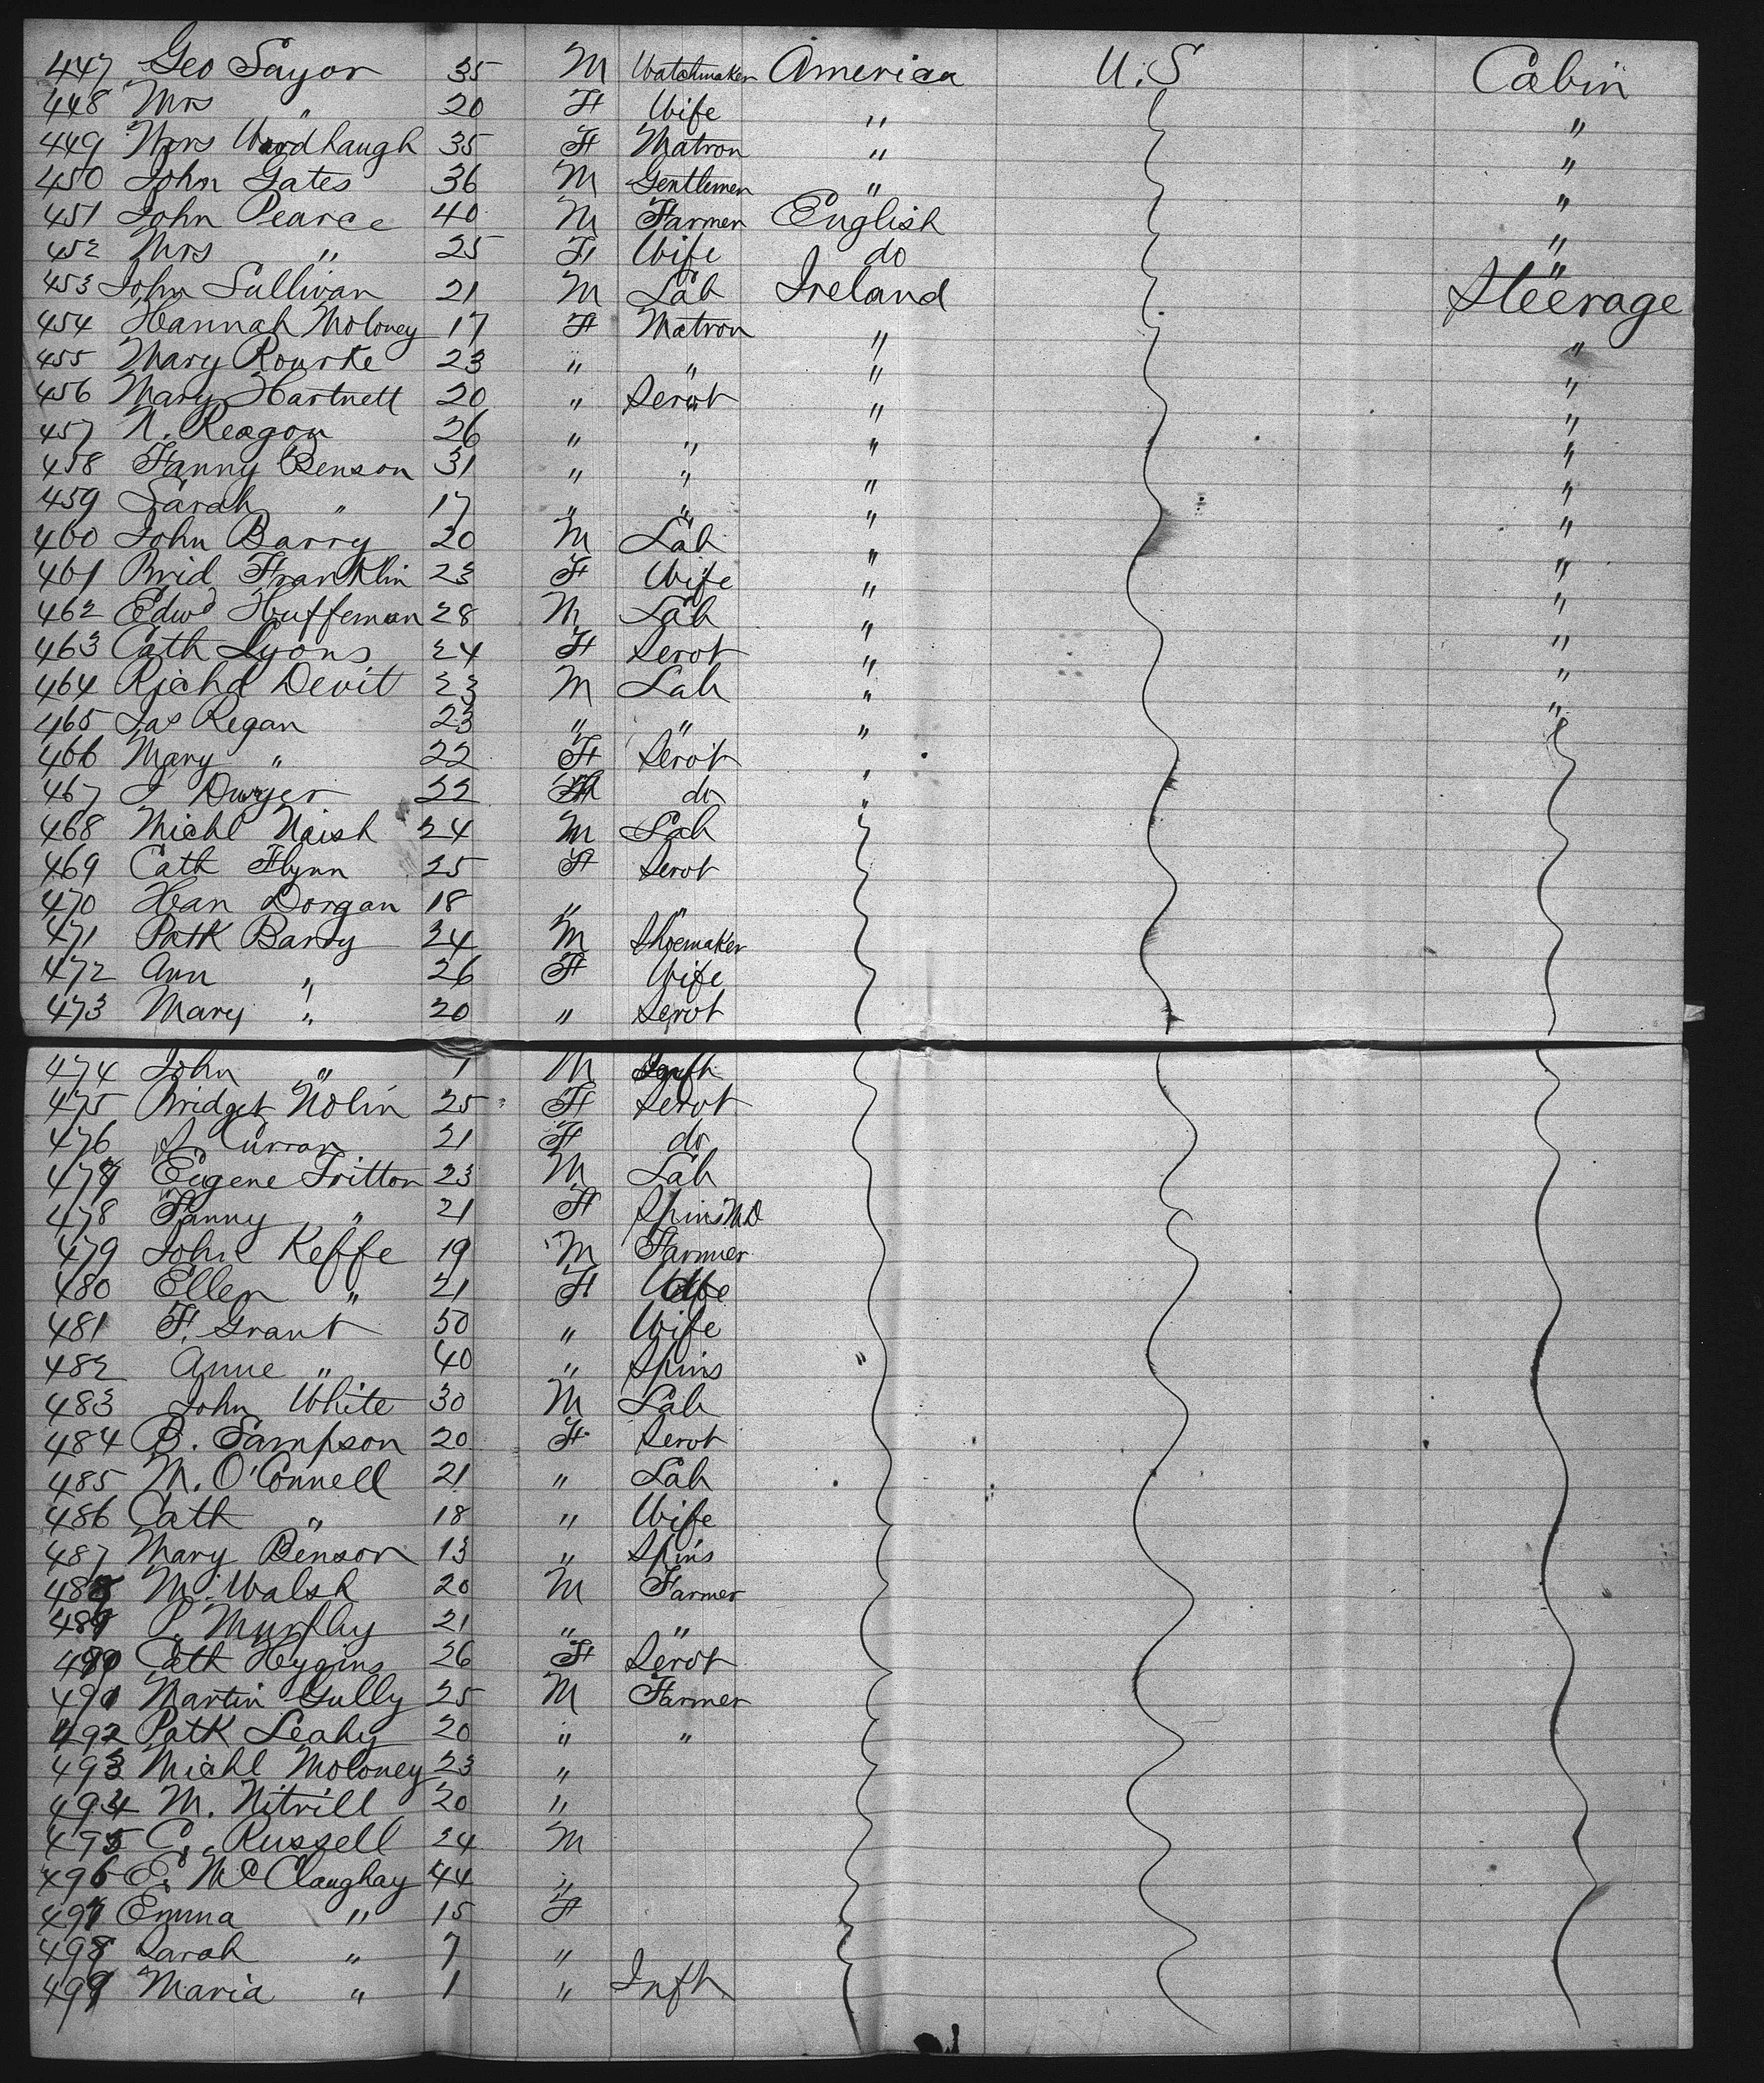 447 Geo Sayor 35 M Watchmaker America U.S Cabin
448 Mrs " 20 F Wife " "
449 Mrs Woodhaugh 35 F Matron " "
450 John Gates 36 M Gentlemen " "
451 John Pearce 40 M Farmer English "
452 Mrs " 25 F Wife do "
453 John Sullivan 21 M Lab Ireland " Steerage
454 Hannah Moloney 17 F Matron " "
455 Mary Rourke 23 " " " "
456 Mary Hartnett 20 " Servt " "
457 N. Reagon 26 " " " "
458 Fanny Benson 31 " " " "
459 Sarah " 17 " " " "
460 John Barry 20 M Lab " "
461 Brid Franklin 23 F Wife " "
462 Edwd Huffeman 28 M Lab " "
463 Cath Lyons 24 F Servt " "
464 Richd Devit 23 M Lab " "
465 Jas Regan 23 " " " "
466 Mary " 22 F Servt "
467 J Dwyer 22 do "
468 Michl Naish 24 M Lab
469 Cath Flynn 25 F Servt
470 Han Dorgan 18 " "
471 Patk Barry 24 M Shoemaker
472 Ann " 26 F Wife
473 Mary " 20 " Servt
474 John " 1 M Infh
475 Bridget Nolin 25 F Servt
476 Curran 21 F do
477 Eugene Fritton 23 M Lab
478 Fanny " 21 F Spins
479 John Keffe 19 M Farmer
480 Ellen " 21 F Wife
481 F. Grant 50 " Wife
482 Anne " 40 " Spins "
483 John White 30 M Lab
484 B. Sampson 20 F Servt
485 M. O'Connell 21 " Lab
486 Cath " 18 " Wife
487 Mary Benson 13 " Spins
488 M. Walsh 20 M Farmer
489 P. Murphy 21 " "
490 Cath Hygins 26 F Servt
491 Martin Gully 25 M Farmer
492 Patk Leahy 20 " "
493 Michl Moloney 23 "
494 M. Nitrill 20 "
495 C. Russell 24 M
496 E. McClaughay 44 "
497 Emma " 15 F
498 Sarah " 7 "
499 Maria " 1 " Infh